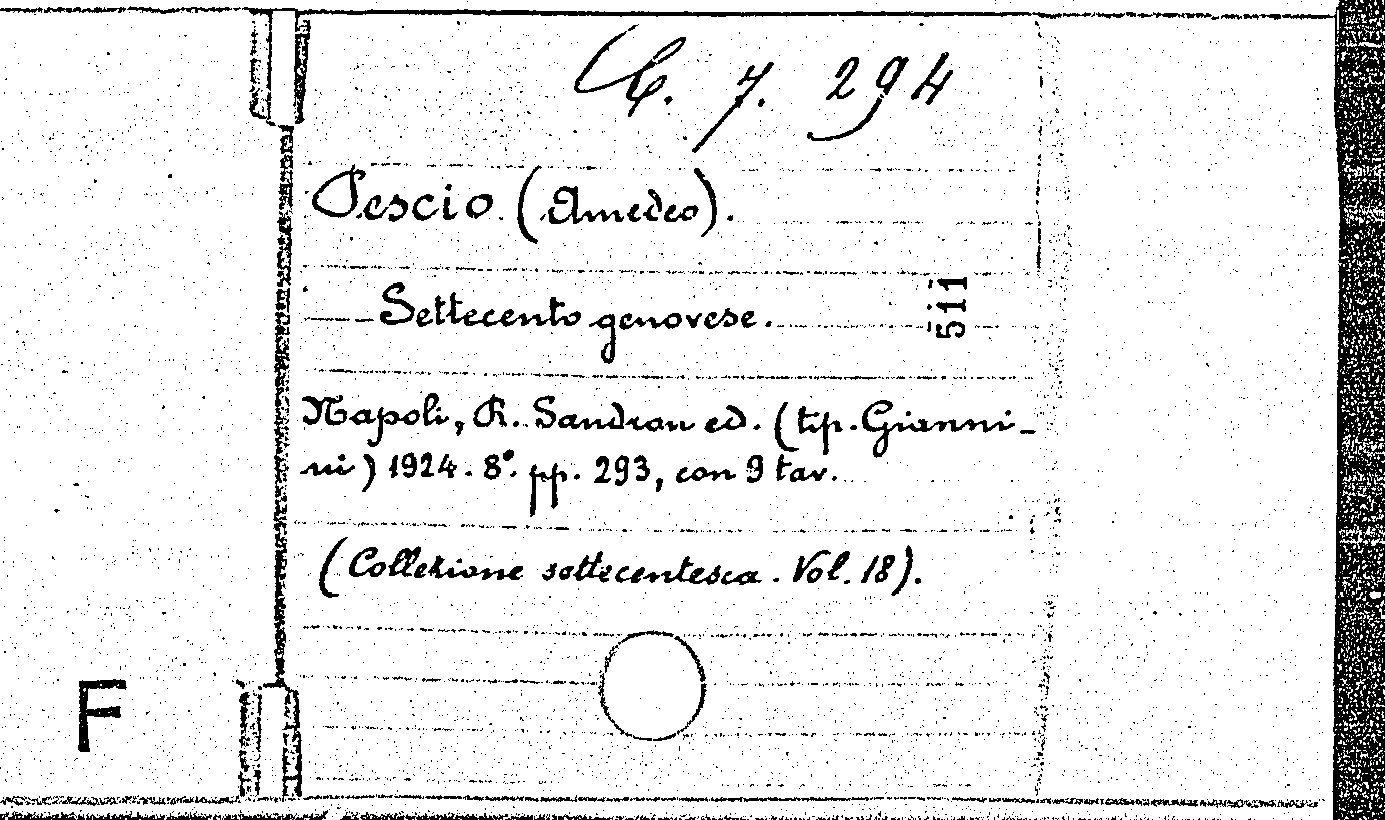 C. 7. 294
Pescio (Amedeo).
Settecento genovese.
511
Napoli, R. Sandron ed. (tip. Gianni-
ni) 1924. 8°. pp. 293, con 9 tav.
(Collezione settecentesca. Vol. 18).
F